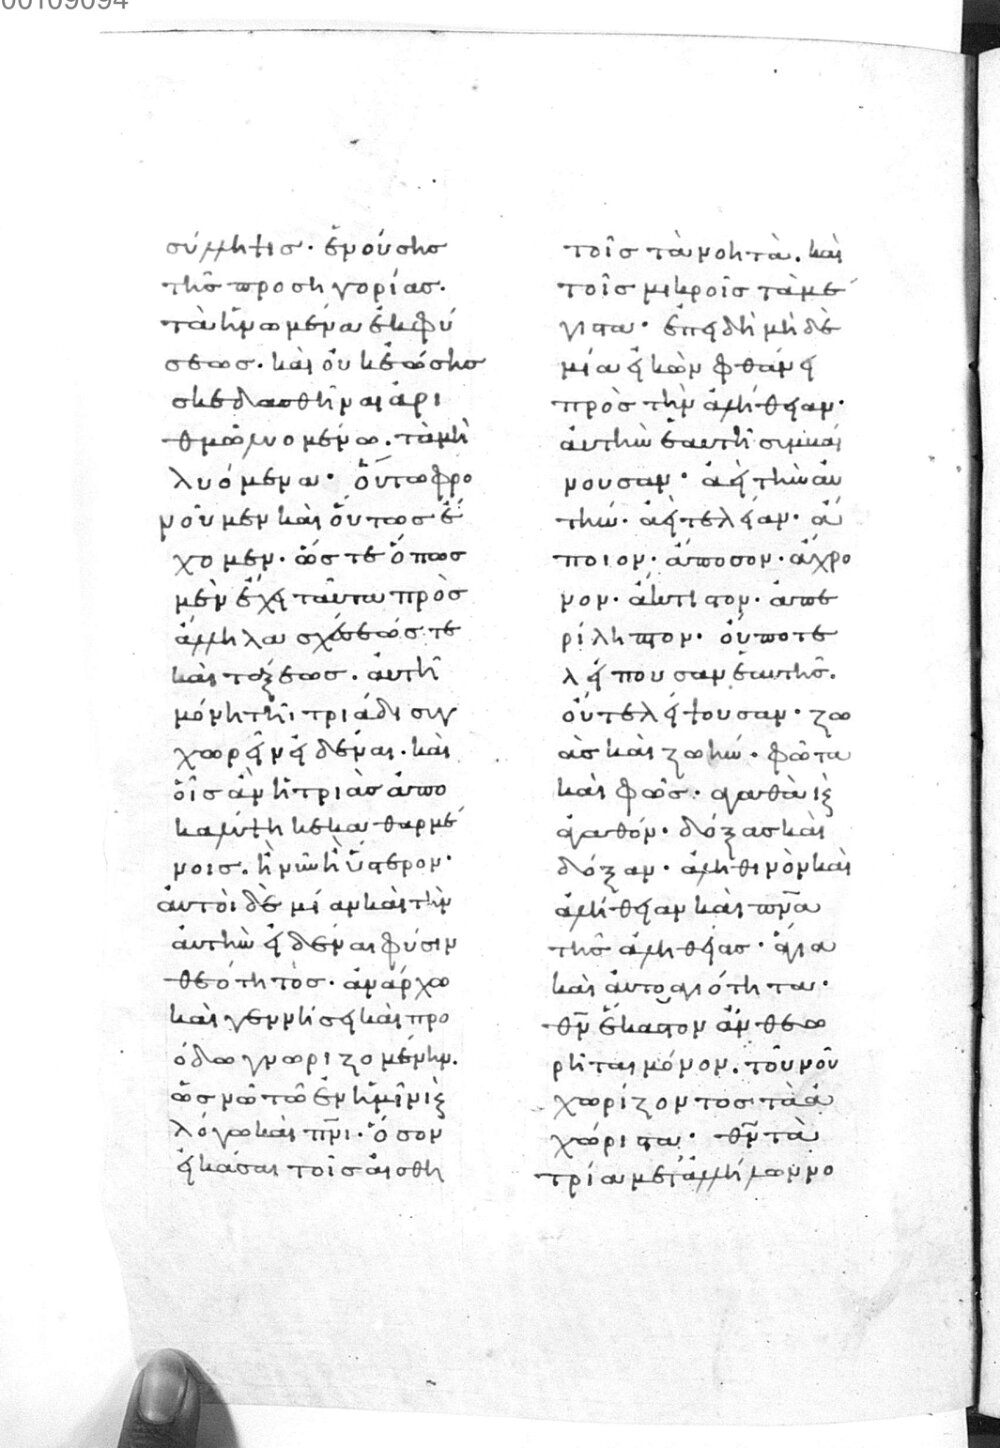 00109094
σύλληψισ· ἑνούσησ
τῆσ προσηγορίασ.
τὰ ἡνωμένα ἐκ φύ
σεωσ· καὶ οὐκ ἐώσησ
σκεδασθῆναι ἀρι
θμῶ λυομένω. τὰ μὴ
λυόμενα· οὕτω φρο
νοῦμεν καὶ οὕτωσ ἔ
χομεν· ὥστε ὅπωσ
μὲν ἔχει ταῦτα πρὸσ
ἄλληλα σχέσεώσ τε
καὶ τάξεωσ. αὐτῆ
μόνη τῆ τριάδι συγ
χωρεῖν εἰδέναι. καὶ
οἷσ ἂν ἡ τριὰσ ἀπο
καλύψη κεκαθαρμέ
νοισ. ἢ νῦν ἢ ὕστερον·
αὐτοὶ δὲ μίαν καὶ τὴν
αὐτὴν εἰδέναι φύσιν
θεότητοσ. ἀνάρχω
καὶ γεννήσει καὶ προ
όδω γνωριζομένην.
ὡσ νῶ τῶ ἐν ἡμῖν κ(αὶ)
λόγω καὶ πν̅ι· ὅσον
εἰκάσαι τοῖσ αἰσθη
τοῖσ τὰ νοητὰ. καὶ
τοῖσ μικροῖσ τὰ μέ
γιστα· ἐπειδὴ μὴ δὲ
μία εἰκὼν φθάνει
πρὸσ τὴν ἀλήθειαν·
αὐτὴν ἑαυτῆ συμβαί
νουσαν· ἀεὶ τὴν αὐ
τήν· ἀεὶ τελείαν· ἄ
ποιον· ἄποσον· ἄχρο
νον· ἄκτιστον· ἀπε
ρίληπτον· οὔποτε
λείπουσαν ἑαυτῆσ.
οὔτε λείψουσαν· ζω
ὰσ καὶ ζωήν· φῶτα
καὶ φῶσ· ἀγαθὰ κ(αὶ)
ἀγαθόν· δόξασ καὶ
δόξαν· ἀληθινὸν καὶ
ἀλήθειαν καὶ πν̅α
τῆσ ἀληθείασ· ἅγια
καὶ αὐτοαγιότητα·
θν̅ ἕκαστον ἂν θεω
ρῆται μόνον. τοῦ νοῦ
χωρίζοντοσ τὰ ἀ
χώριστα· θν̅ τὰ
τρία μετ' ἀλλήλων νο